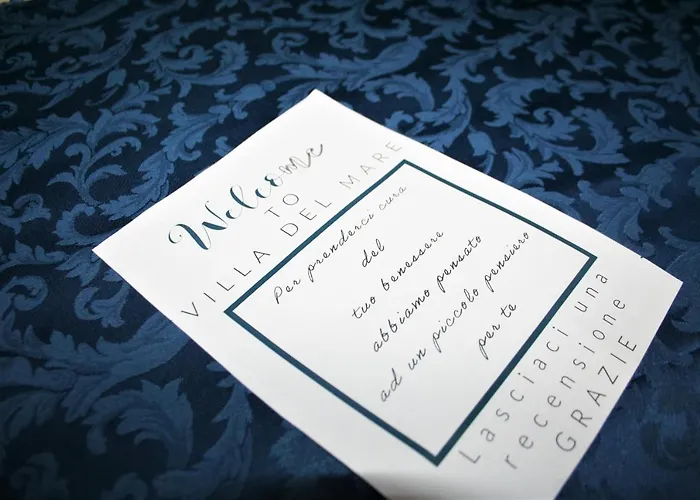 Welcome
TO
VILLA DEL MARE
Per prenderci cura
del
tuo benessere
abbiamo pensato
ad un piccolo pensiero
per te
Lasciaci una
recensione
GRAZIE